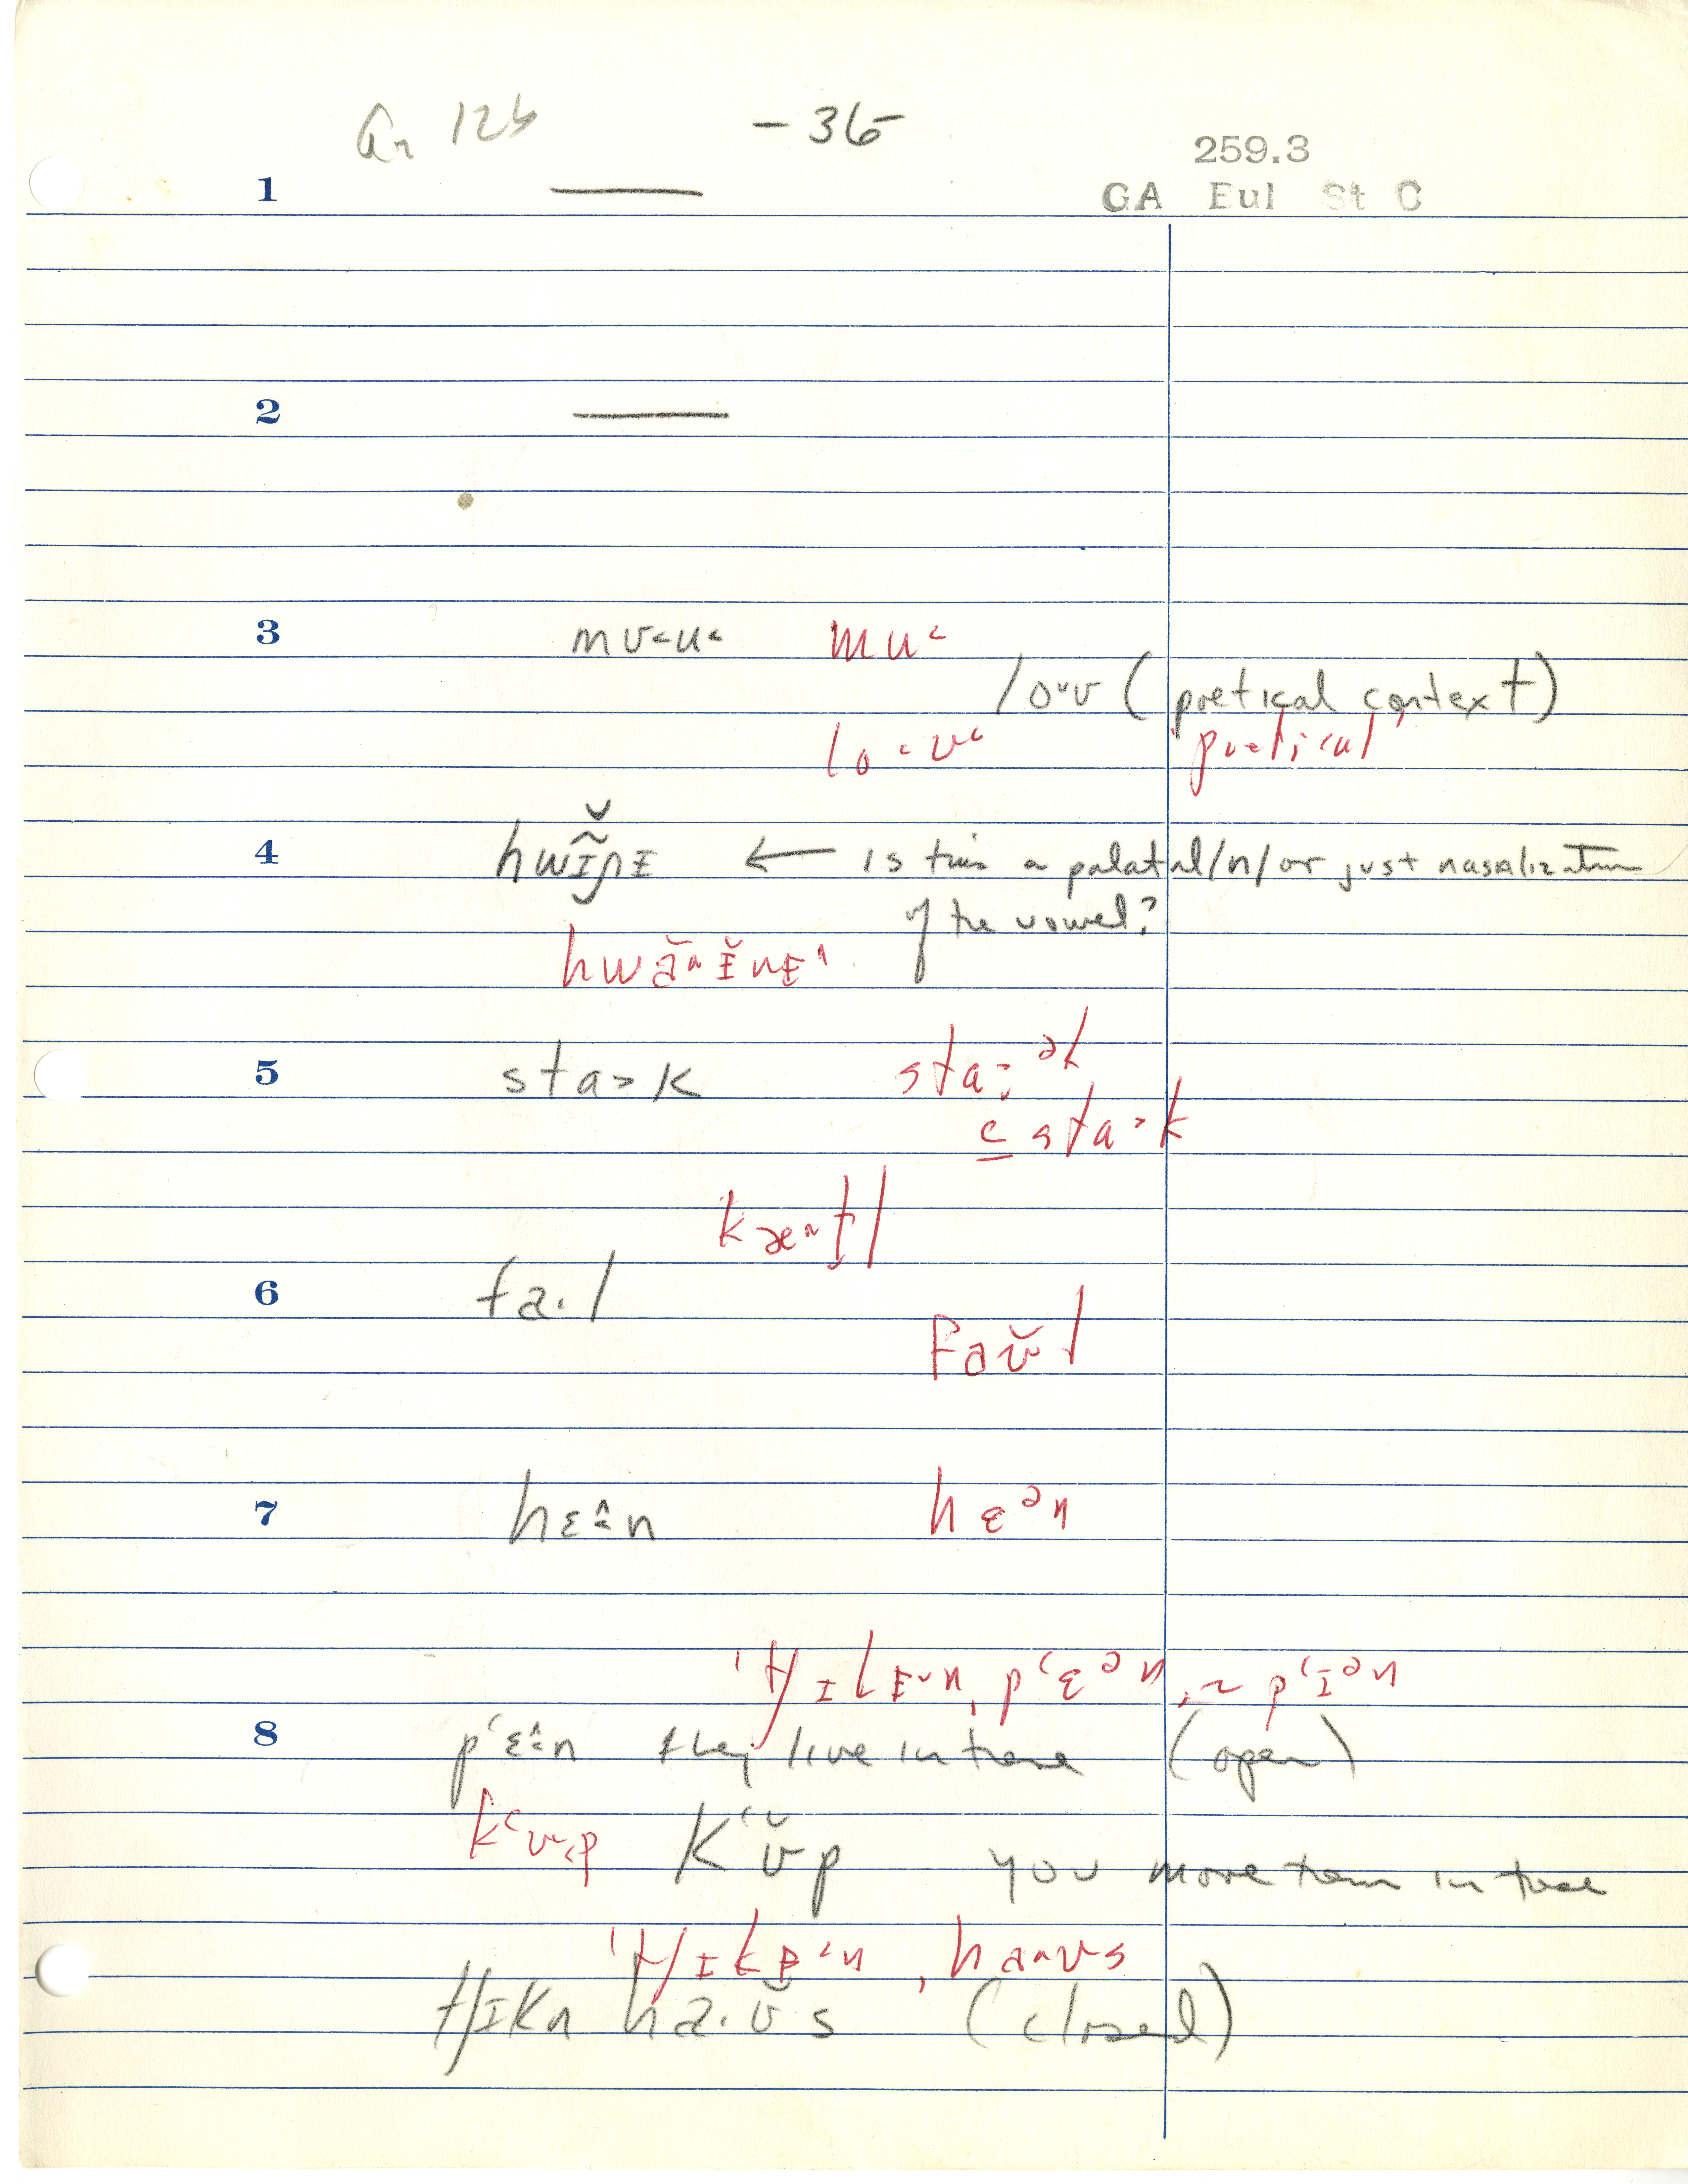 Gn 12b -36-
259.3
1 —— GA Eul St C
2 ——
3 mʊ˂u˂ mu˂
loˑʊ (poetical context)
lo˂ʊ˂ 'poetical'
4 hwɪ̯̃̆ɲɪ ← is this a palatal /n/ or just nasalization
of the vowel?
hwãⁿɪ̆nɪ^
5 sta˃k sta˃ᵊk
c sta˃k
kæ^tl
6 fa.l
faʊ̆l
7 hɛ^n hɛᵊn
'tʃɪkɪ˅n, p‘ɛᵊn, ~ p‘ɪᵊn
8 p‘ɛ^n they live in these (open)
k‘ʊ˂p k‘ʊ̆p you move them in these
'tʃɪkɪ˂n, ha^ʊs
tʃɪkn ha.ʊ̆s (closed)